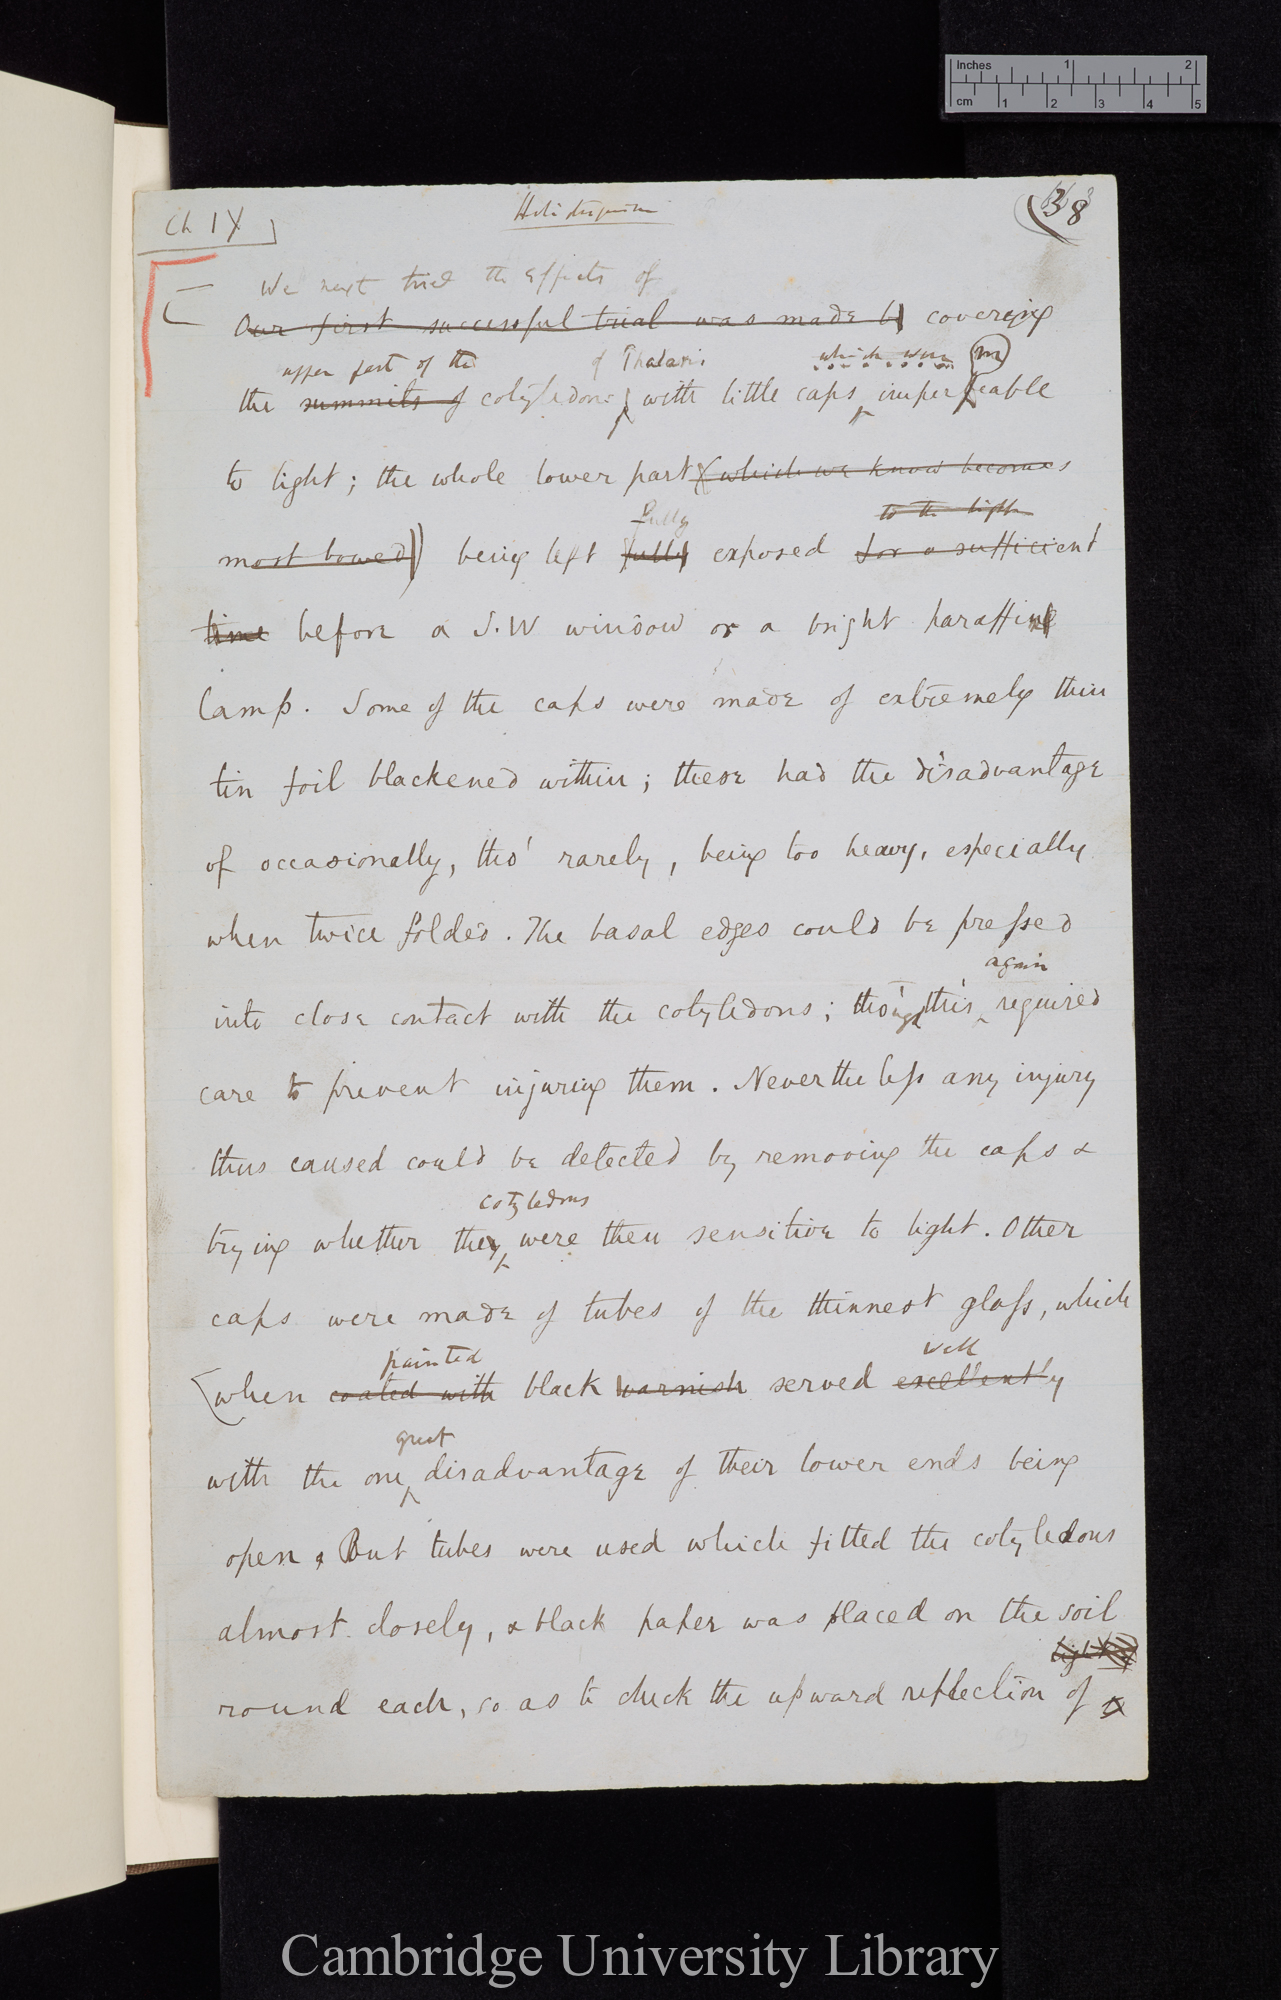 Inches 1 2
cm 1 2 3 4 5
Ch IX
Heliotropism
38
We next tried the effects of
Our first successful trial was made by covering
upper part of the of Phalaris which were m
the summits of cotyledons with little caps imper eable
to light; the whole lower part (which we know becomes
fully to the light
most bowed) being left fully exposed for a sufficient
time before a S.W window or a bright paraffine
lamp. Some of the caps were made of extremely thin
tin foil blackened within; these had the disadvantage
of occasionally, tho' rarely, being too heavy, especially
when twice folded. The basal edges could be pressed
again
into close contact with the cotyledons; though this required
care to prevent injuring them. Nevertheless any injury
thus caused could be detected by removing the caps &
cotyledons
trying whether they were then sensitive to light. Other
caps were made of tubes of the thinnest glass, which
painted well
when coated with black varnish served excellently
great
with the one disadvantage of their lower ends being
open. But tubes were used which fitted the cotyledons
almost closely, & black paper was placed on the soil
round each, so as to check the upward reflection of
Cambridge University Library